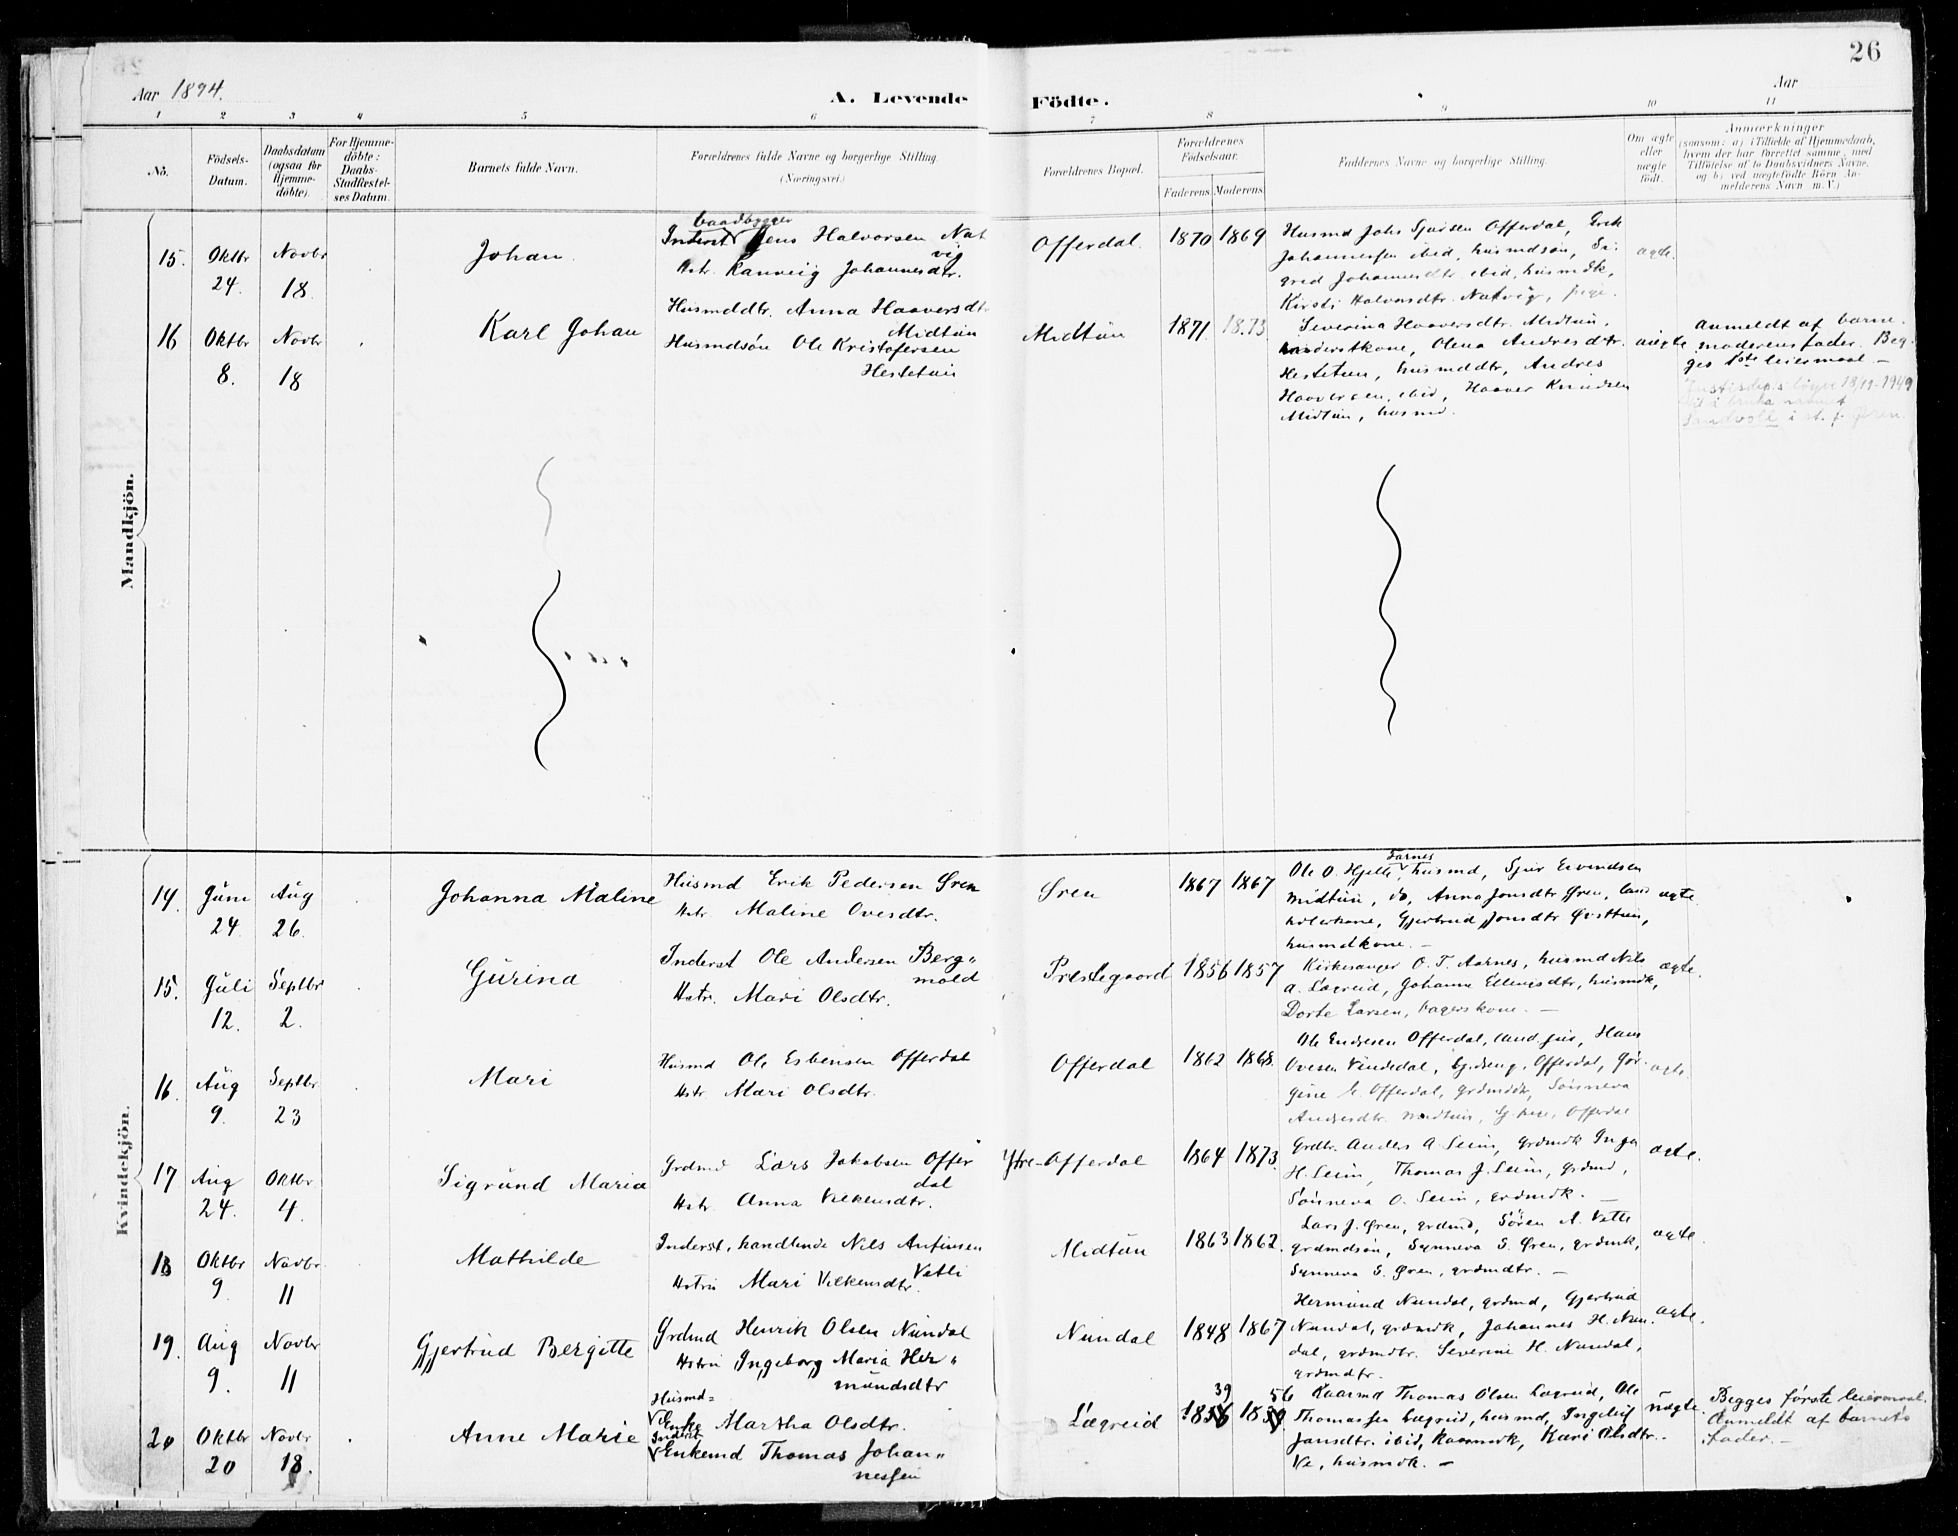 26
Aar 1894.
A. Levende Födte.
Aar
1 2 3 4 5 6 7 8 9 10 11
No.
Födsels-Datum.
Daabsdatum (ogsaa för Hjemmedöbte).
For Hjemmedöbte: Daabs-Stadfæstelses Datum.
Barnets fulde Navn.
Forældrenes fulde Navne og borgerlige Stilling.
(Næringsvei.)
Forældrenes Bopæl.
Forældrenes Födselsaar.
Faderens. Moderens.
Faddernes Navne og borgerlige Stilling.
Om ægte eller uægte födt.
Anmærkninger
(saasom: a) i Tilfælde af Hjemmedaab, hvem der har forrettet samme, med Tilföielse af to Daabsvidners Navne, og b) ved uægtefödte Börn Anmelderens Navn m. V.)
Mandkjön.
15. Oktbr 24. Novbr 18.
Johan.
baadbygger
Inderst Jens Halvorsen Natvig
Hstr. Ranveig Johannesdtr.
Offerdal. 1870 1869
Husmd Johs Sjursen Offerdal, Erik
Johannessen ibid, husmdsön, Sigred
Johannesdtr. ibid, husmdk,
Kirsti Halvorsdtr. Natvig, pige.
ægte.
16 Oktbr 8. Novbr 18
Karl Johan
Husmddtr. Anna Haaversdtr
Midtun
Husmdsön Ole Kristofersen
Hestetun
Midtun 1871. 1873
Severina Haaversdtr. Midtun,
inderstkone, Olena Andresdtr.
Hestetun, husmddtr, Andres
Haaversen, ibid, Haaver Knudsen
Midtun, husmd.
uægte
anmeldt af barnemoderens
fader. Begges
1ste leiermaal. –
Justisdep.s 1949
bruka namnet
Sandvoll i st. f. Øren.
Kvindekjön.
14. Juni 24. Aug 26.
Johanna Maline
Husmd Erik Pedersen Øren
Hstr. Maline Ovesdtr.
Øren 1867 1867
Farnes
Ole O. Hjelle, husmd, Sjur Eivendsen
Midtun, do, Anna Jonsdtr Øren, landhdlerkone,
Gjertrud Jonsdtr
husmdkone. –
ægte.
15. Juli 12. Septbr 2.
Gurina
Inderst Ole Andersen Bergmold
Hstr. Mari Olsdtr.
Prestegaard 1856 1857
Kirkesanger O. T. Aarnes, husmd Nils
A. Lægreid, Johanne Ellingsdtr, husmdk,
Dorte Larsen, bagerskone. –
ægte.
16. Aug 9. Septbr 23
Mari
Husmd Ole Esbensen Offerdal
Hstr. Mari Olsdtr.
Offerdal 1862 1868.
Ole Endresen Offerdal, Hans
Ovesen Vindedal, Offerdal,
Offerdal, grdmdk, Sönneva
Andresdtr. Midtun, Offerdal
ægte.
17. Aug 24. Oktbr 4.
Sigrund Maria
Grdmd Lars Jakobsen Offerdal
Hstr. Anna Vilkensdtr.
Ytre-Offerdal 1864 1873.
Grdbr. Anders A. Seim, grdmdk Inga
H. Seim, Thomas J. Seim, grdmd,
Sönneva O. Seim, grdmdk. –
ægte.
18 Oktbr 9 Novbr 11
Mathilde
Inderst, handlende Nils Anfinsen
Vatli
Hstru Mari Vilkensdtr
Midtun 1863 1862.
Lars J. Øren, grdmd, Sören A. Vatli
grdmdsön, Synneva S. Øren, grdmdk,
Synneva S. Øren, grdmdtr. –
ægte.
19. Aug 9. Novbr 11
Gjertrud Bergitte
Grdmd Henrik Olsen Nundal
Hstru Ingeborg Maria Hermundsdtr
Nundal 1848 1867
Hermund Nundal, grdmd, Gjertrud
Nundal, grdmdk, Johannes H. Nundal,
grdmdtr. Severine H. Nundal,
grdmdtr.
ægte.
20 Oktbr 20 Novbr 18.
Anne Marie
Husmd=
Enke Martha Olsdtr.
Inderst
Enkemd Thomas Johannessen
Lægreid
39 56
Kaarmd Thomas Olsen Lægreid, Ole
Thomassen Lægreid, husmd, Ingeleif
Jansdtr. ibid, kaarmdk, Kari Olsdtr.
Ve, husmdk. –
uægte.
Begges förste leiermaal.
Anmeldt af barnets
fader. –